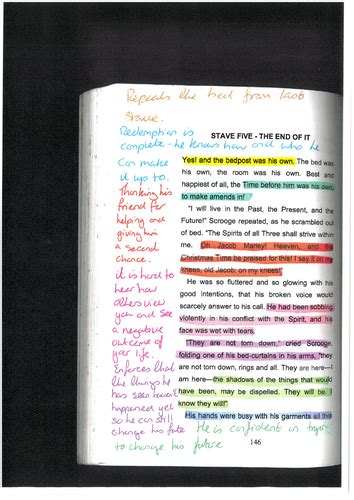 Repeats the bed from last
stave.
Redemption is
complete - he knows how and who he
can make
it up to.
Thanking his
friend for
helping and
giving him
a second
chance.
it is hard to
hear how
others view
you and see
a negative
outcome of
your life.
Enforces that
the things he
has seen haven't
happened yet
so he can still
change his fate
He is confident in trying
to change his future
STAVE FIVE - THE END OF IT
Yes! and the bedpost was his own. The bed was
his own, the room was his own. Best and
happiest of all, the Time before him was his own,
to make amends in!
"I will live in the Past, the Present, and the
Future!" Scrooge repeated, as he scrambled out
of bed. "The Spirits of all Three shall strive within
me. Oh Jacob Marley! Heaven, and the
Christmas Time be praised for this! I say it on my
knees, old Jacob; on my knees!"
He was so fluttered and so glowing with his
good intentions, that his broken voice would
scarcely answer to his call. He had been sobbing
violently in his conflict with the Spirit, and his
face was wet with tears.
"They are not torn down," cried Scrooge,
folding one of his bed-curtains in his arms, "they
are not torn down, rings and all. They are here—I
am here—the shadows of the things that would
have been, may be dispelled. They will be. I
know they will!"
His hands were busy with his garments all this
146